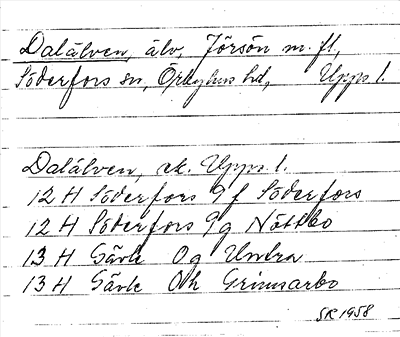 Dalälven, älv, Jörsön m. fl.,
Söderfors sn, Örbyhus hd, Upps l.
Dalälven, ek. Upps l.
12 H Söderfors 9 f Söderfors
12 H Söderfors 9 g Nöttbo
13 H Gävle 0 g Untra
13 H Gävle 0 h Grimsarbo
SR 1958